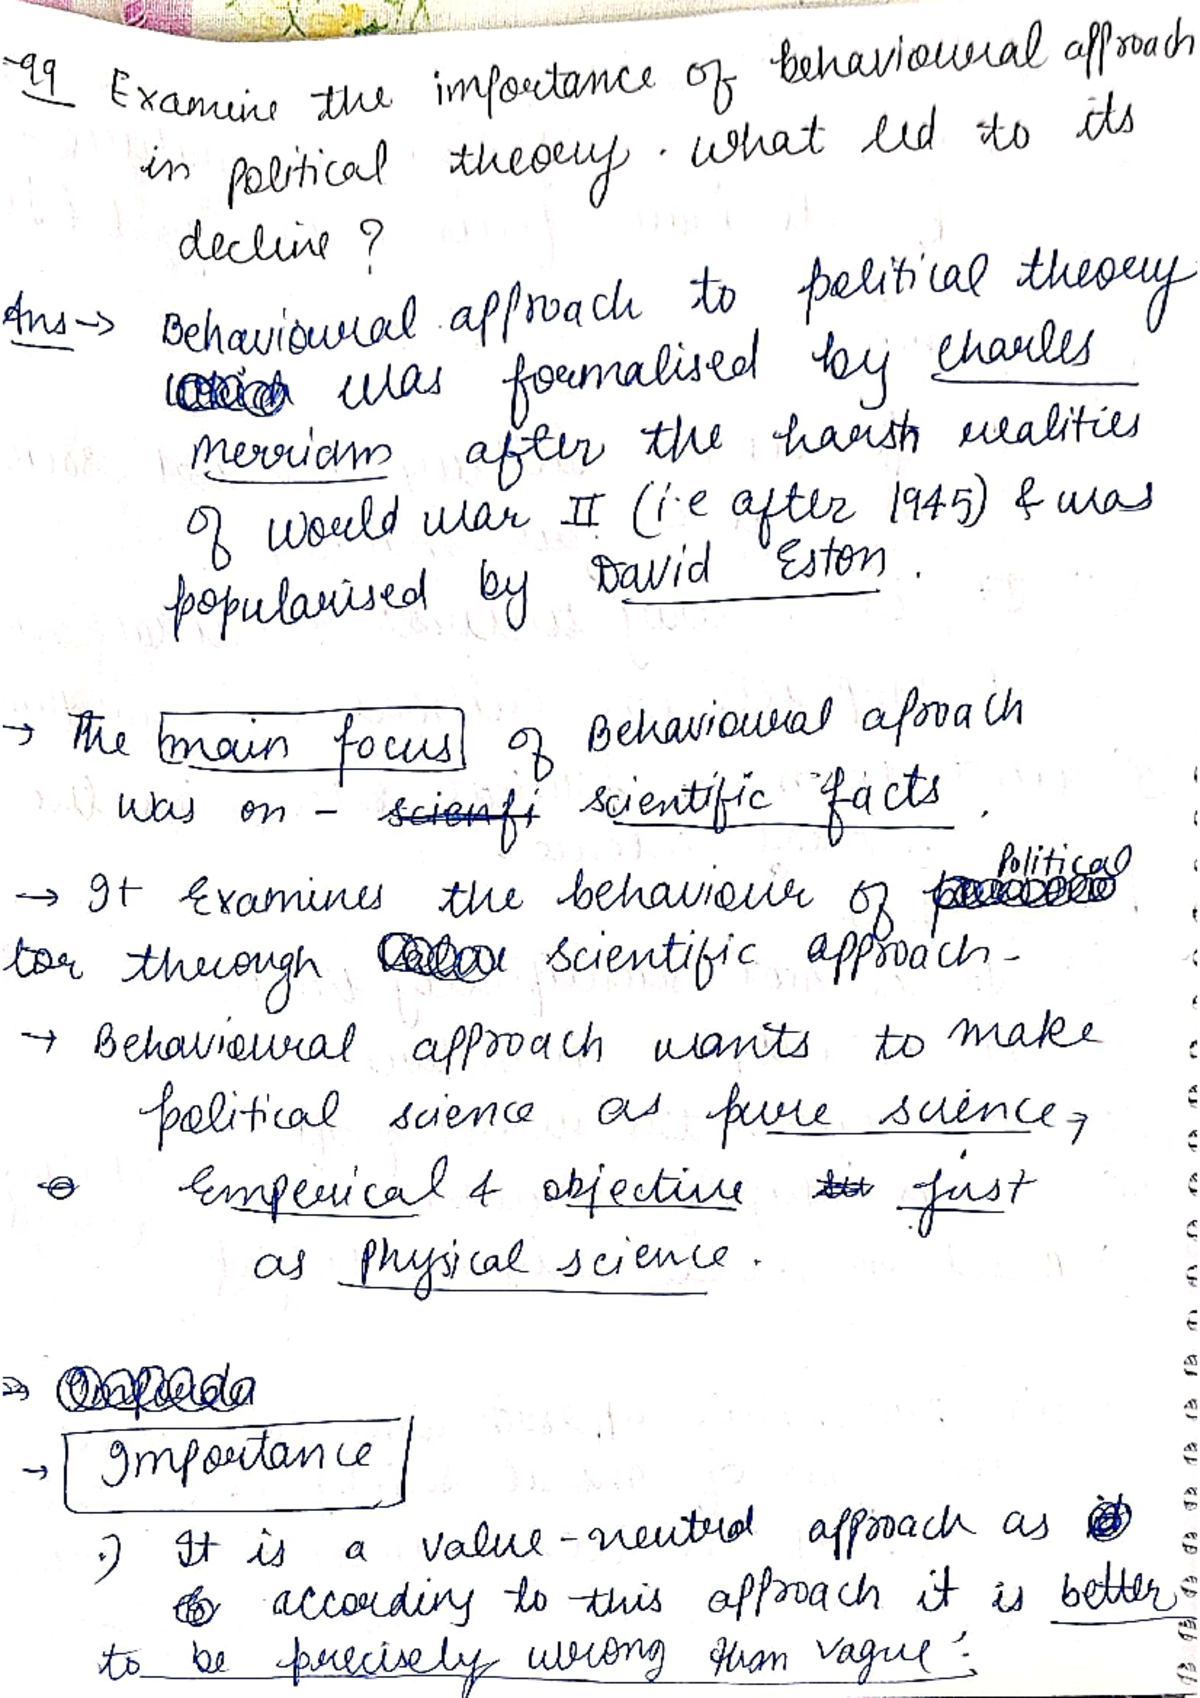 -99 Examine the importance of behavioural approach
in political theory. what led to its
decline?
Ans→ Behavioural approach to political theory
was formalised by charles
Merriam after the harsh realities
of world war II (i.e after 1945) & was
popularised by David Eston.
→ The main focus of Behavioural aproach
was on - scienfi scientific facts.
Political
→ It Examines the behaviour of
tor through scientific approach-
→ Behavioural approach wants to make
political science as pure science,
Emperical & objective just
as Physical science.
→ Importance
.) It is a value-neutral approach as
according to this approach it is better
to be precisely wrong than vague.